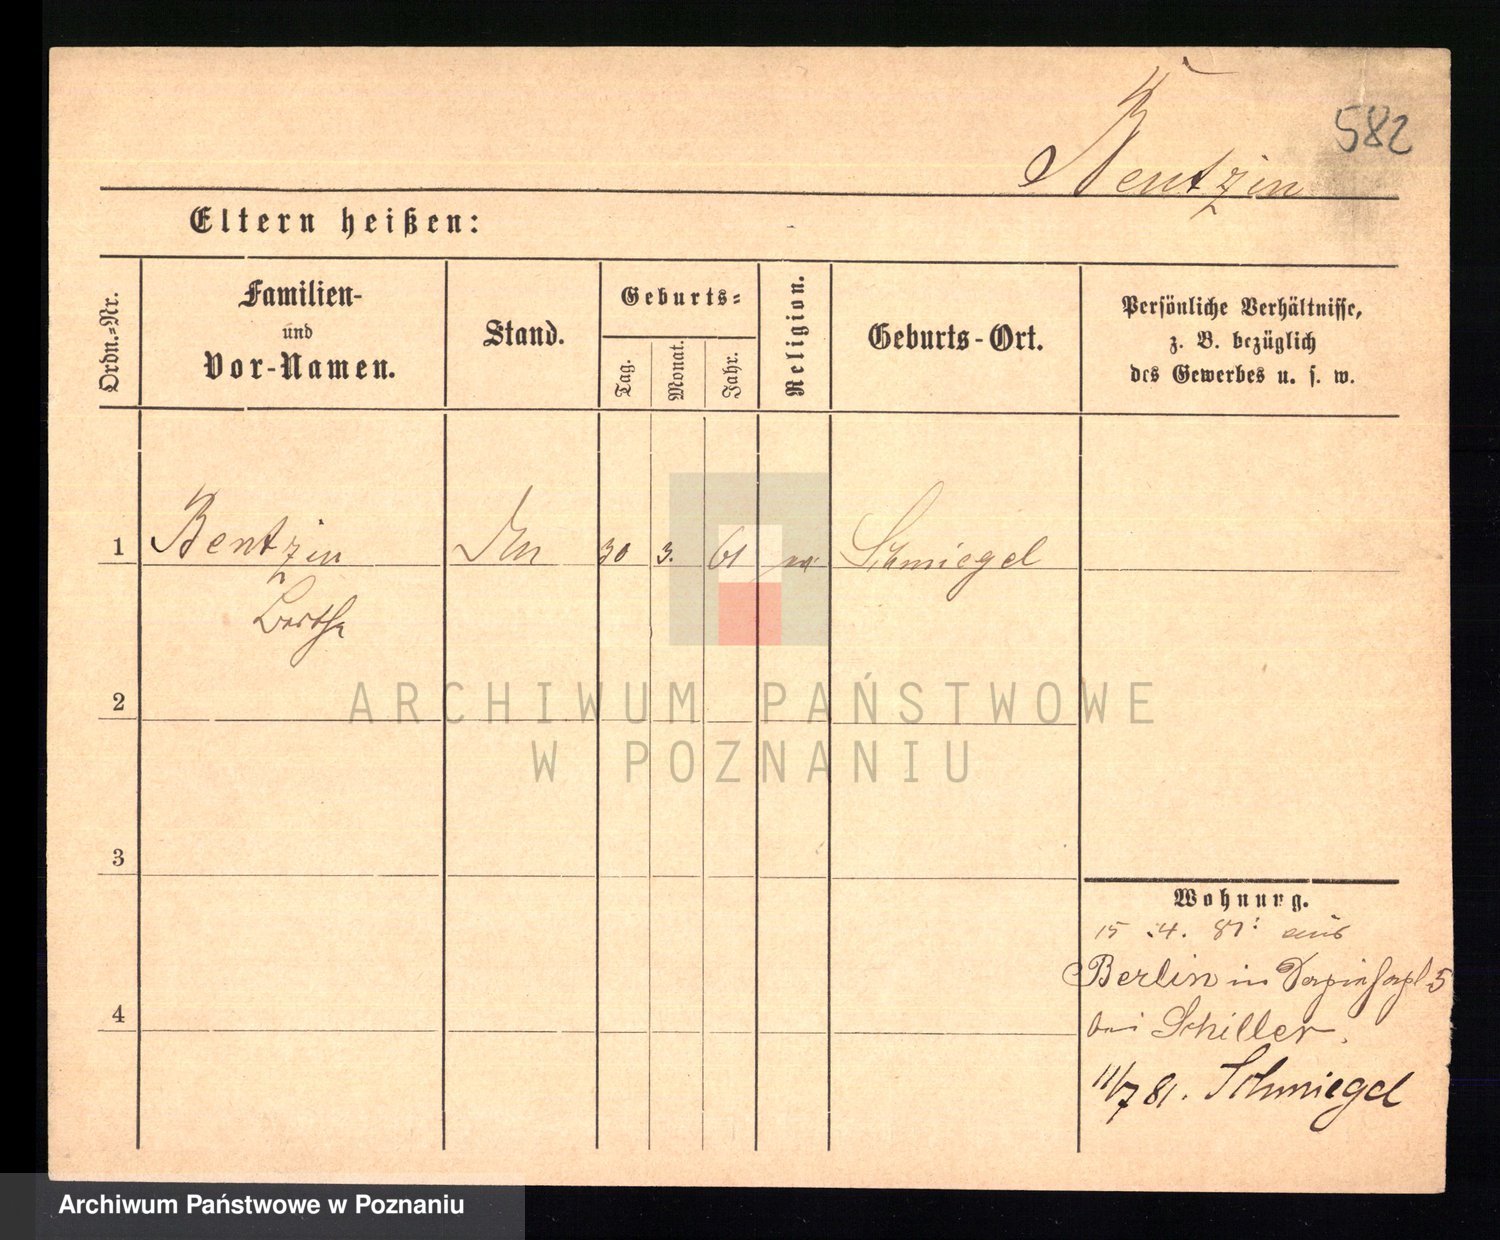 582
Bentzin
Eltern heißen:
Ordn.-Nr.
Familien-
und
Vor-Namen.
Stand.
Geburts-
Tag.
Monat.
Jahr.
Religion.
Geburts-Ort.
Persönliche Verhältnisse,
z. B. bezüglich
des Gewerbes u. s. w.
1 Bentzin 30 3. 61 Schmiegel
Bertha
2
3
4
Wohnung.
15 .4. 81: aus
Berlin in 5
bei Schiller.
11/7 81. Schmiegel
ARCHIWUM PAŃSTWOWE
W POZNANIU
Archiwum Państwowe w Poznaniu